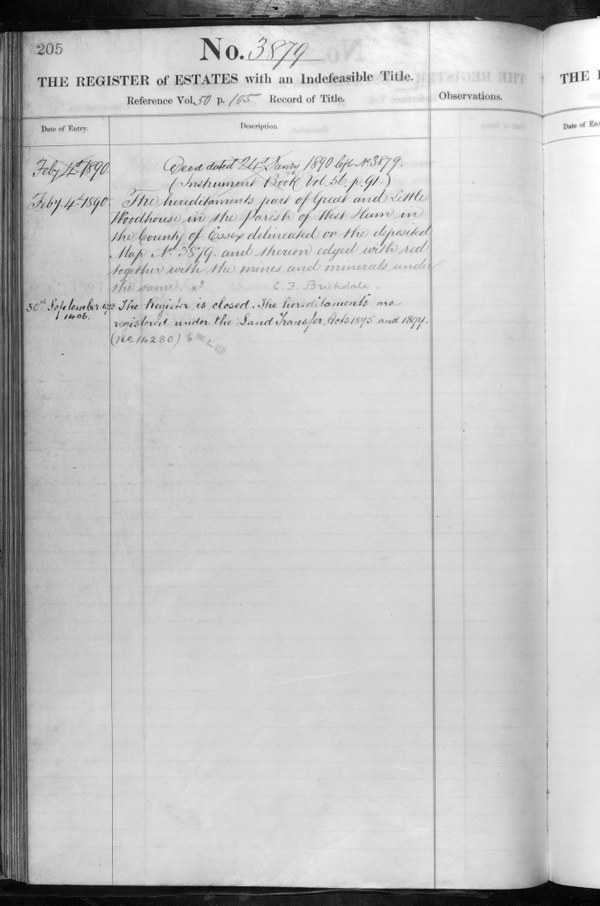 205
No. 3879
THE REGISTER of ESTATES with an Indefeasible Title.
Reference Vol. 50 p. 105 Record of Title.
Observations.
Date of Entry.
Description.
Feby 4th 1890. Deed dated Jany 1890 Cofte No 3879.
(Instrument Book Vol. 56. p. 91.)
Feby 4th 1890. The hereditaments part of Great and Little
Woodhouse in the Parish of West Ham in
the County of Essex delineated on the deposited
Map No 3879. and thereon edged with red
together with the mines and minerals under
the same. C. F. Brickdale.
30th September 1903 The Register is closed. The hereditaments are
registered under the Land Transfer Acts 1875 and 1897.
(No. 14280)
THE
Date of En